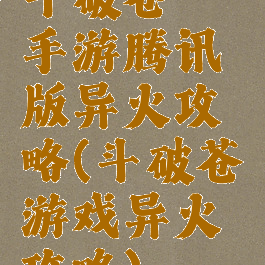 斗破苍
手游腾讯
版异火攻
略(斗破苍
游戏异火
攻略)